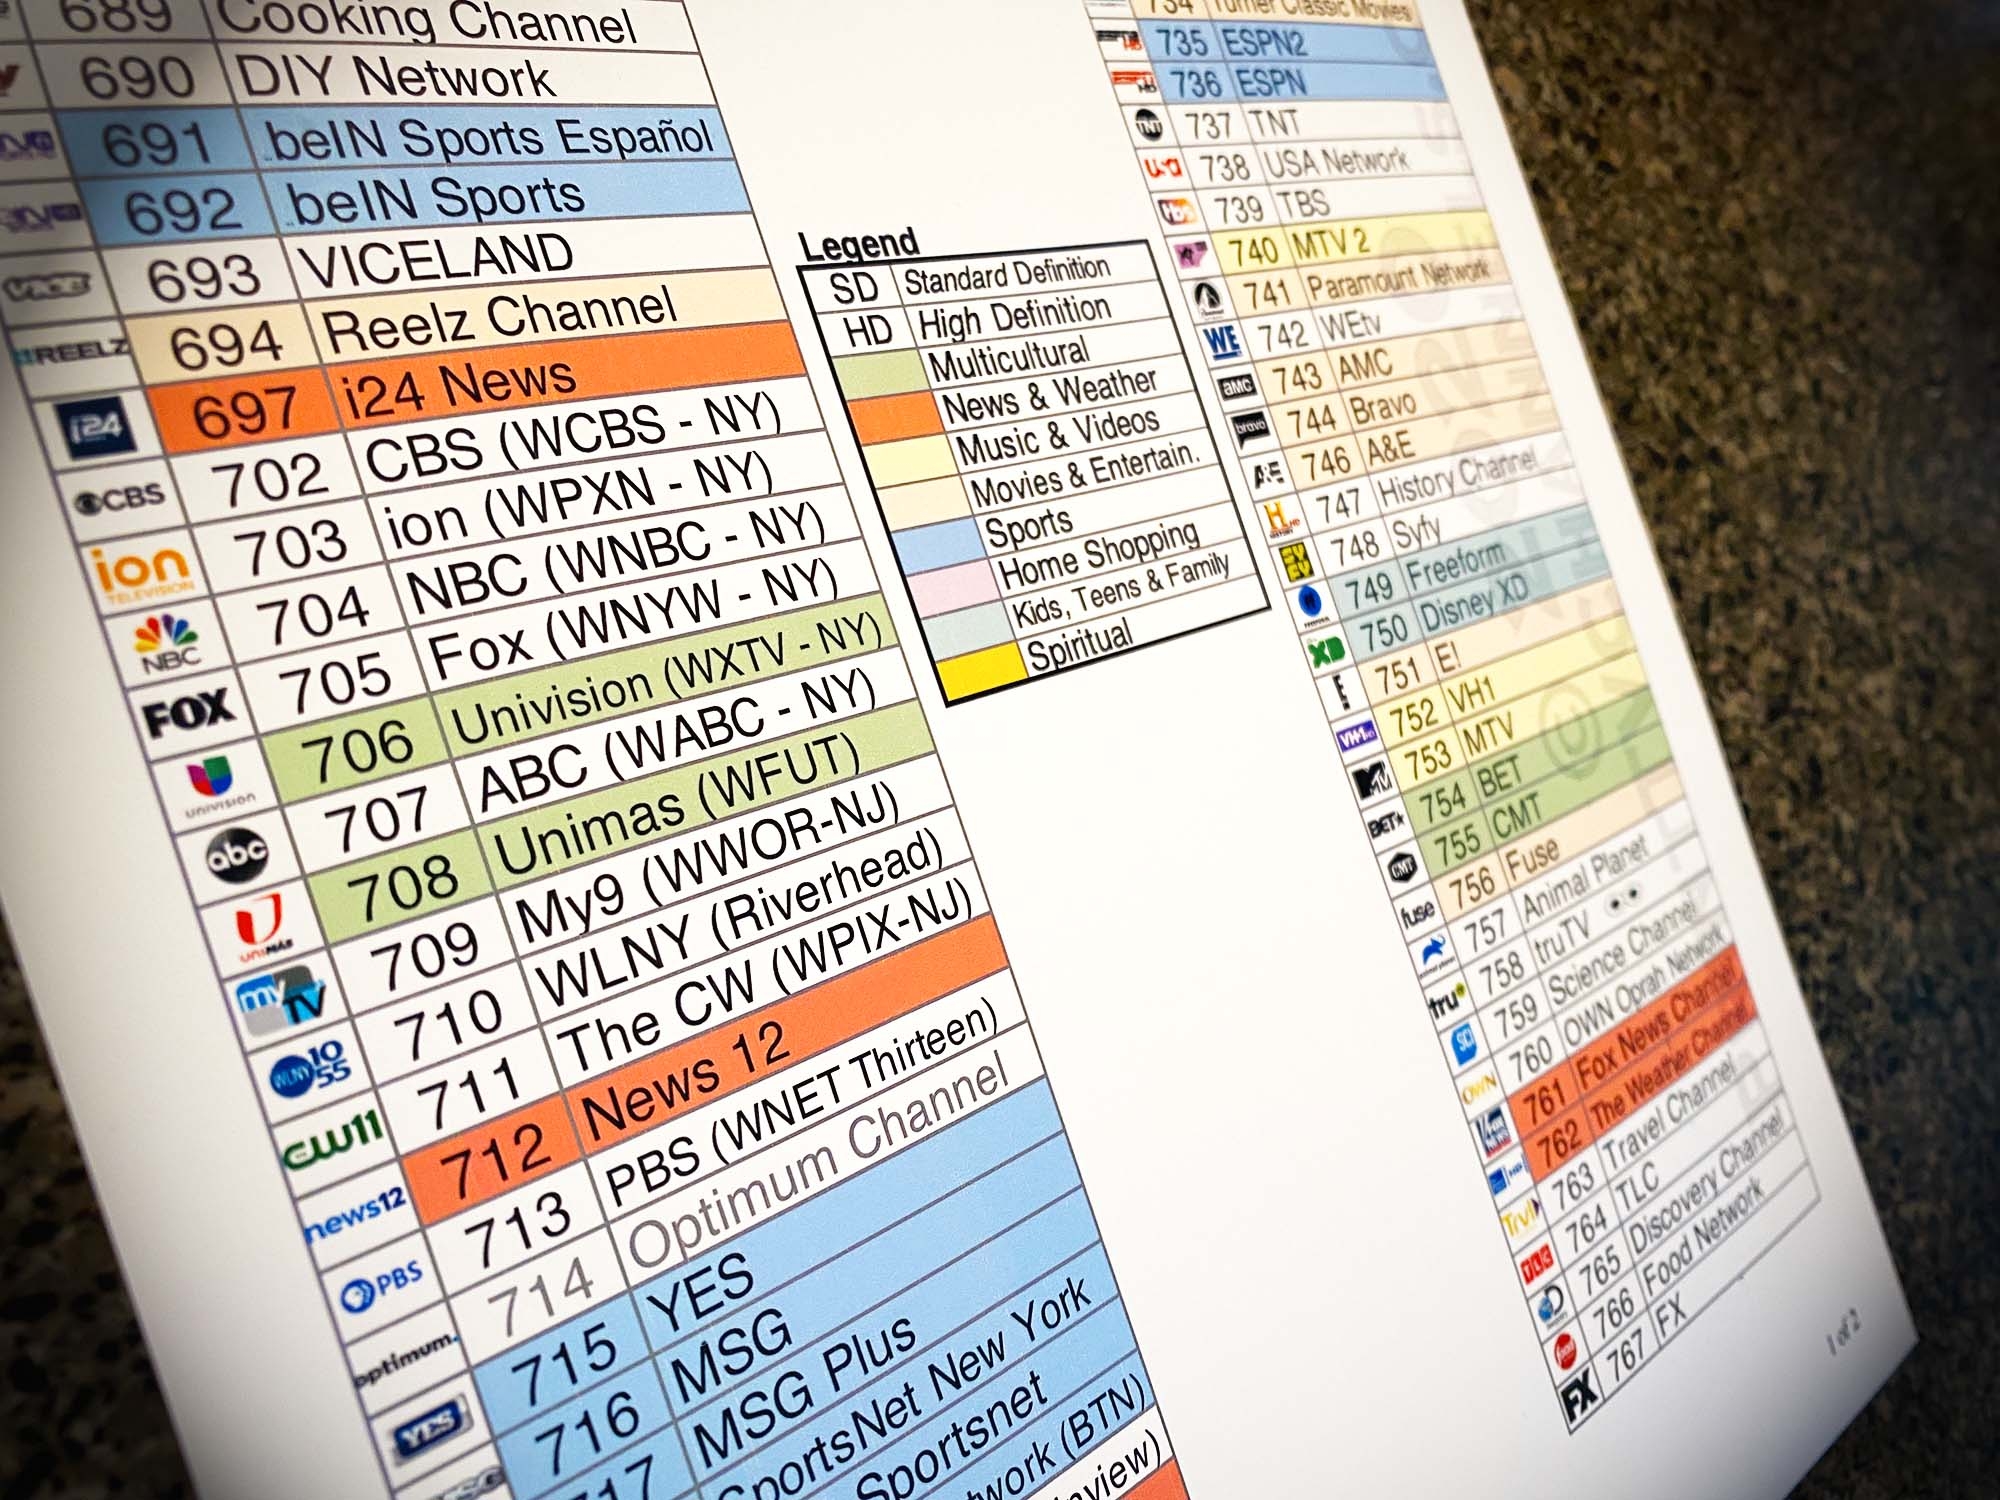 689 Cooking Channel
690 DIY Network
691 beIN Sports Español
692 beIN Sports
VICE 693 VICELAND
REELZ 694 Reelz Channel
i24 697 i24 News
CBS 702 CBS (WCBS - NY)
ion TELEVISION 703 ion (WPXN - NY)
NBC 704 NBC (WNBC - NY)
FOX 705 Fox (WNYW - NY)
UNIVISION 706 Univision (WXTV - NY)
abc 707 ABC (WABC - NY)
UNIMÁS 708 Unimas (WFUT)
my TV 709 My9 (WWOR-NJ)
WLNY 10 55 710 WLNY (Riverhead)
CW11 711 The CW (WPIX-NJ)
news12 712 News 12
PBS 713 PBS (WNET Thirteen)
optimum. 714 Optimum Channel
YES 715 YES
716 MSG
717 MSG Plus
SportsNet New York
Sportsnet
(BTN)
Legend
SD Standard Definition
HD High Definition
Multicultural
News & Weather
Music & Videos
Movies & Entertain.
Sports
Home Shopping
Kids, Teens & Family
Spiritual
734 Turner Classic Movies
735 ESPN2
736 ESPN
TNT 737 TNT
usa 738 USA Network
tbs 739 TBS
740 MTV 2
741 Paramount Network
WE 742 WEtv
amc 743 AMC
bravo 744 Bravo
A&E 746 A&E
H 747 History Channel
SYFY 748 Syfy
749 Freeform
XD 750 Disney XD
E! 751 E!
VH1 752 VH1
MTV 753 MTV
BET 754 BET
CMT 755 CMT
fuse 756 Fuse
757 Animal Planet
tru 758 truTV
SCI 759 Science Channel
OWN 760 OWN Oprah Network
FOX NEWS 761 Fox News Channel
762 The Weather Channel
Trvl 763 Travel Channel
TLC 764 TLC
D 765 Discovery Channel
food 766 Food Network
FX 767 FX
1 of 2